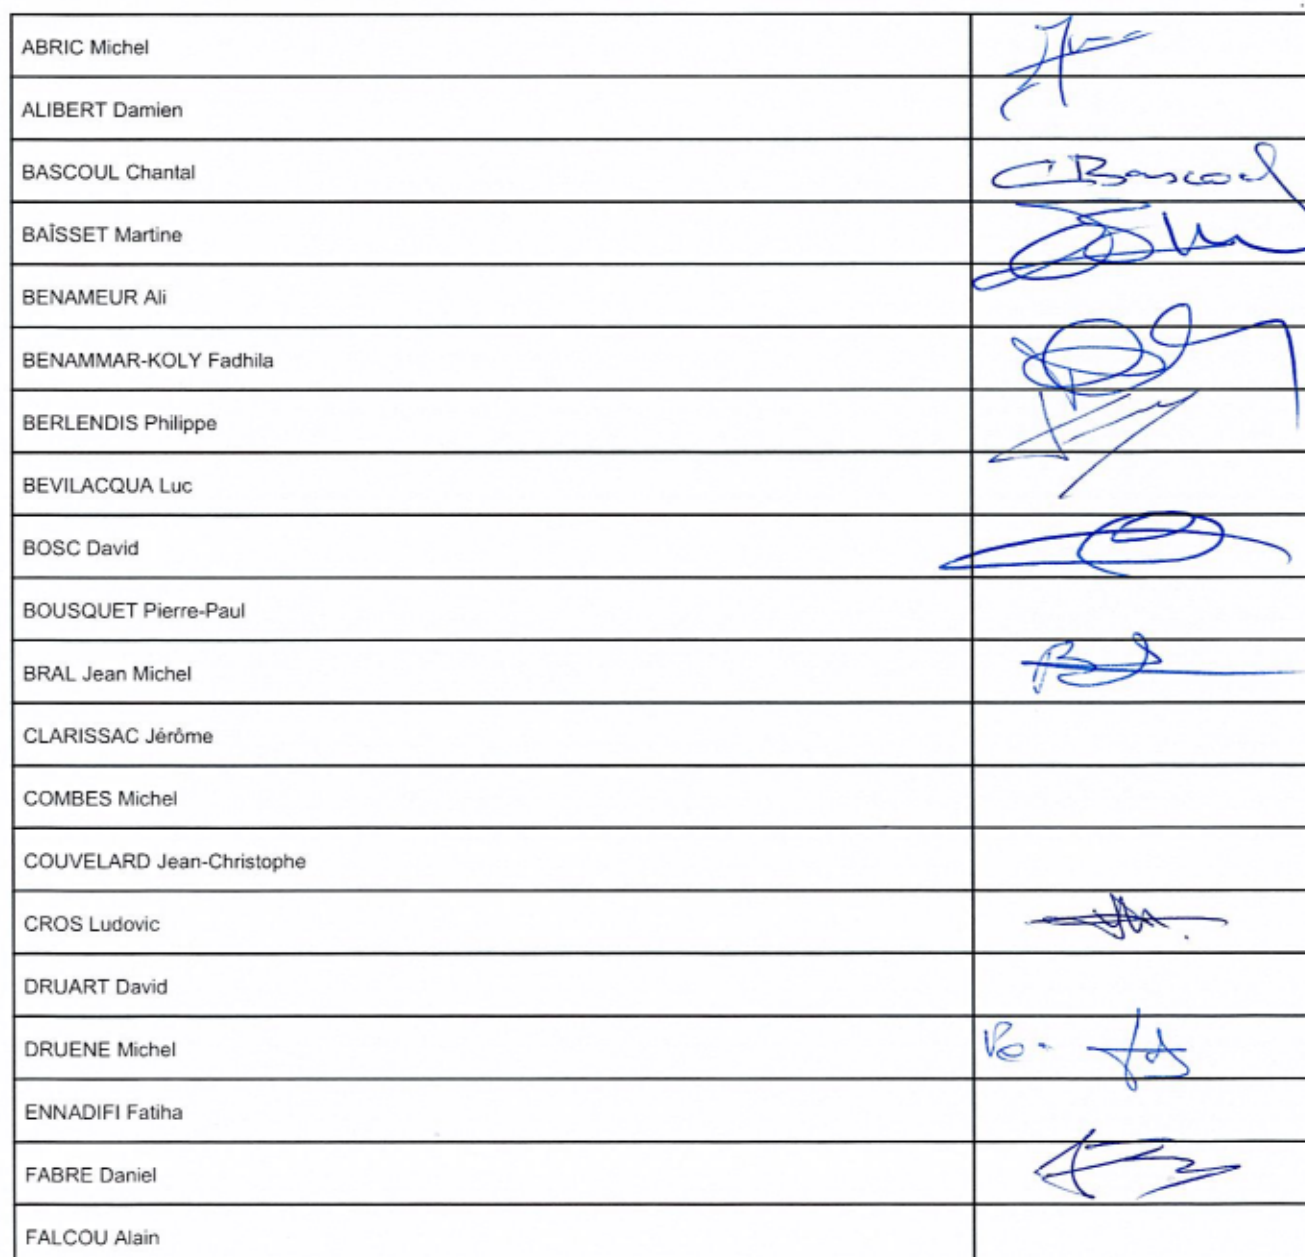 ABRIC Michel
ALIBERT Damien
BASCOUL Chantal
C Bascoul
BAÎSSET Martine
BENAMEUR Ali
BENAMMAR-KOLY Fadhila
BERLENDIS Philippe
BEVILACQUA Luc
BOSC David
BOUSQUET Pierre-Paul
BRAL Jean Michel
CLARISSAC Jérôme
COMBES Michel
COUVELARD Jean-Christophe
CROS Ludovic
DRUART David
DRUENE Michel
ENNADIFI Fatiha
FABRE Daniel
FALCOU Alain